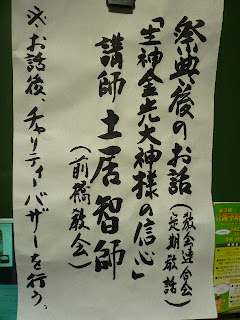 祭典後のお話
(教会連合会定期教話)
「生神金光大神様の信心」
講師 土居智師
(前橋教会)
※お話後、チャリティーバザーを行う。